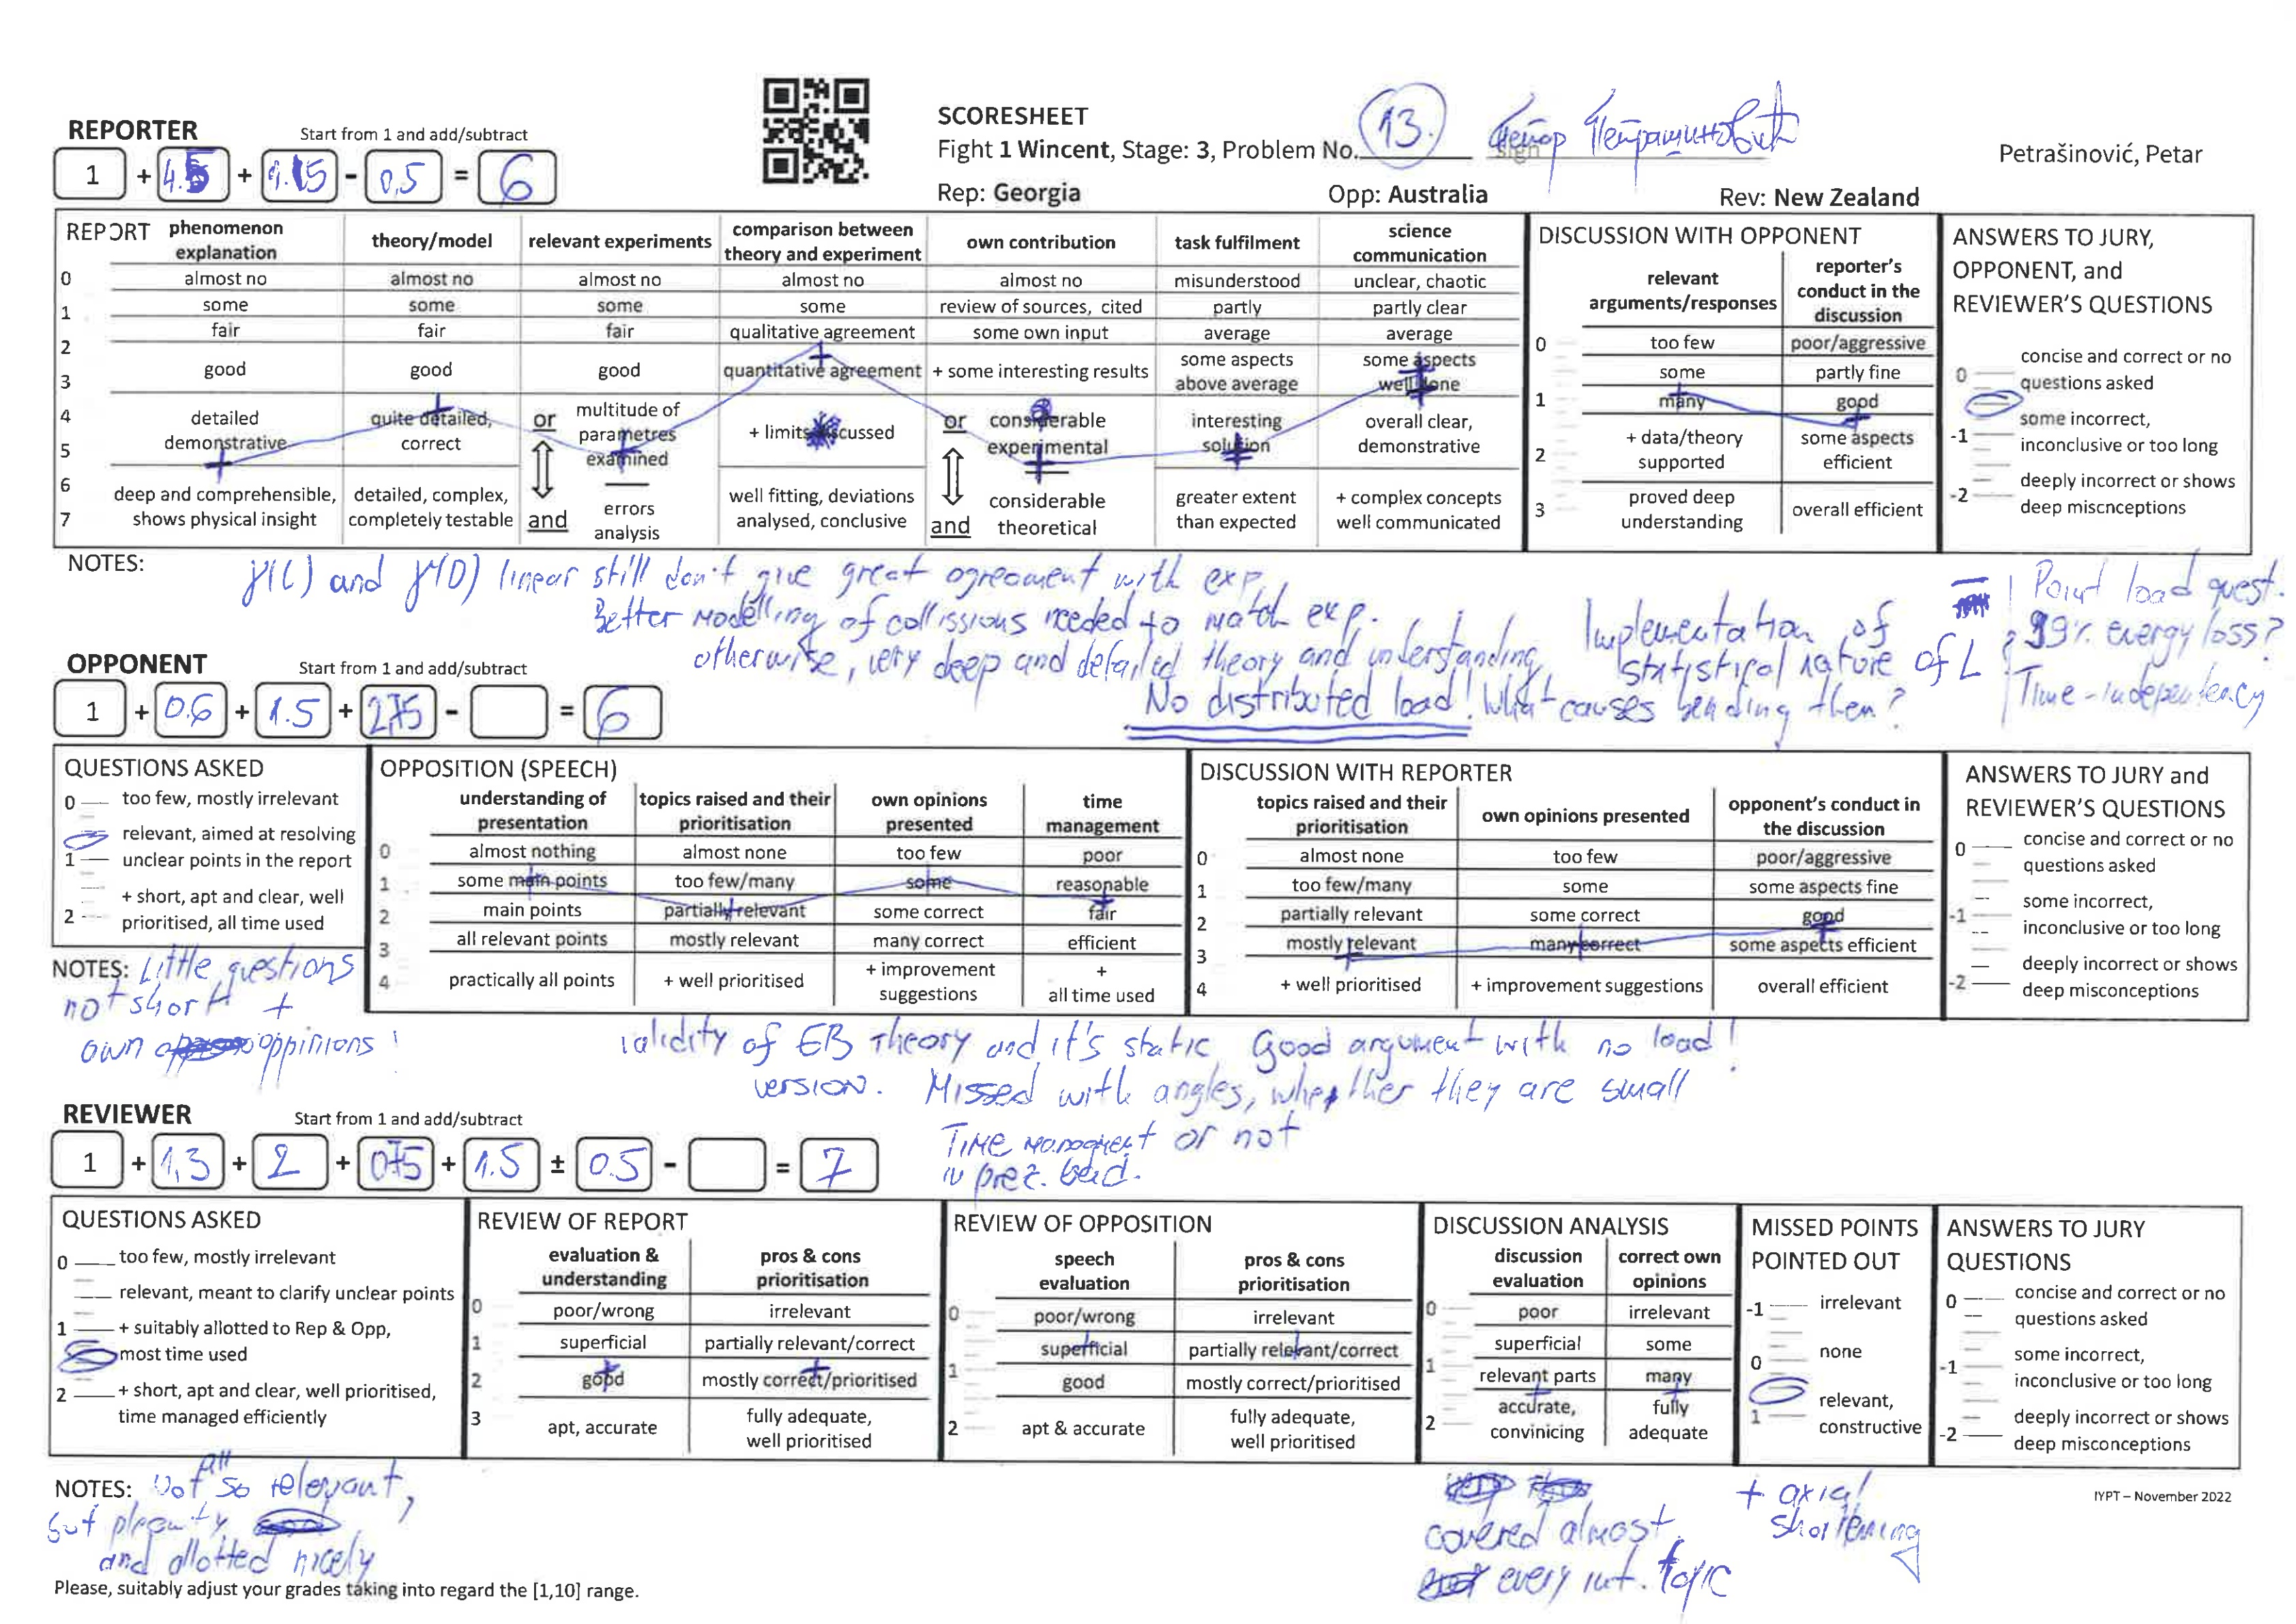 SCORESHEET
Fight 1 Wincent, Stage: 3, Problem No. 13.
sign
Петар Петрашиновић
Petrašinović, Petar
Rep: Georgia Opp: Australia Rev: New Zealand
REPORTER Start from 1 and add/subtract
1 + 4.5 + 1.15 - 0,5 = 6
REPORT
phenomenon explanation
theory/model
relevant experiments
comparison between theory and experiment
own contribution
task fulfilment
science communication
0 almost no almost no almost no almost no almost no misunderstood unclear, chaotic
1 some some some some review of sources, cited partly partly clear
2 fair fair fair qualitative agreement some own input average average
3 good good good quantitative agreement + some interesting results some aspects above average some aspects well done
4 5 detailed demonstrative quite detailed, correct or multitude of parametres examined + limits discussed or considerable experimental interesting solution overall clear, demonstrative
6 7 deep and comprehensible, shows physical insight detailed, complex, completely testable and errors analysis well fitting, deviations analysed, conclusive and considerable theoretical greater extent than expected + complex concepts well communicated
DISCUSSION WITH OPPONENT
relevant arguments/responses
reporter's conduct in the discussion
0 too few poor/aggressive
some partly fine
1 many good
2 + data/theory supported some aspects efficient
3 proved deep understanding overall efficient
ANSWERS TO JURY, OPPONENT, and REVIEWER'S QUESTIONS
0 concise and correct or no questions asked
-1 some incorrect, inconclusive or too long
-2 deeply incorrect or shows deep miscnceptions
NOTES:
γ(L) and γ(D) linear still don't give great agreement with exp.
Better modelling of collissions needed to match exp.
otherwise, very deep and detailed theory and understanding
Implementation of statistical nature of L
No distributed load! What causes bending then?
Point load quest.
99% energy loss?
Time-independency
OPPONENT Start from 1 and add/subtract
1 + 0.6 + 1.5 + 2,75 - = 6
QUESTIONS ASKED
0 too few, mostly irrelevant
relevant, aimed at resolving
1 unclear points in the report
+ short, apt and clear, well
2 prioritised, all time used
OPPOSITION (SPEECH)
understanding of presentation
topics raised and their prioritisation
own opinions presented
time management
0 almost nothing almost none too few poor
1 some main points too few/many some reasonable
2 main points partially relevant some correct fair
3 all relevant points mostly relevant many correct efficient
4 practically all points + well prioritised + improvement suggestions + all time used
DISCUSSION WITH REPORTER
topics raised and their prioritisation
own opinions presented
opponent's conduct in the discussion
0 almost none too few poor/aggressive
1 too few/many some some aspects fine
2 partially relevant some correct good
3 mostly relevant many correct some aspects efficient
4 + well prioritised + improvement suggestions overall efficient
ANSWERS TO JURY and REVIEWER'S QUESTIONS
0 concise and correct or no questions asked
-1 some incorrect, inconclusive or too long
-2 deeply incorrect or shows deep misconceptions
NOTES: Little questions
not short +
own oppinions!
validity of EB Theory and it's static version.
Good argument with no load!
Missed with angles, whether they are small or not
Time managment
in prez. bad.
REVIEWER Start from 1 and add/subtract
1 + 1,3 + 2 + 0.75 + 1.5 ± 0.5 - = 7
QUESTIONS ASKED
0 too few, mostly irrelevant
relevant, meant to clarify unclear points
1 + suitably allotted to Rep & Opp,
most time used
2 + short, apt and clear, well prioritised,
time managed efficiently
REVIEW OF REPORT
evaluation & understanding
pros & cons prioritisation
0 poor/wrong irrelevant
1 superficial partially relevant/correct
2 good mostly correct/prioritised
3 apt, accurate fully adequate, well prioritised
REVIEW OF OPPOSITION
speech evaluation
pros & cons prioritisation
0 poor/wrong irrelevant
superficial partially relevant/correct
1 good mostly correct/prioritised
2 apt & accurate fully adequate, well prioritised
DISCUSSION ANALYSIS
discussion evaluation
correct own opinions
0 poor irrelevant
superficial some
1 relevant parts many
2 accurate, convinicing fully adequate
MISSED POINTS POINTED OUT
-1 irrelevant
0 none
relevant,
1 constructive
ANSWERS TO JURY QUESTIONS
0 concise and correct or no questions asked
-1 some incorrect, inconclusive or too long
-2 deeply incorrect or shows deep misconceptions
NOTES: Not all so relevant,
but plenty
and allotted nicely
covered almost
every int. topic
+ axial
shortening
IYPT – November 2022
Please, suitably adjust your grades taking into regard the [1,10] range.